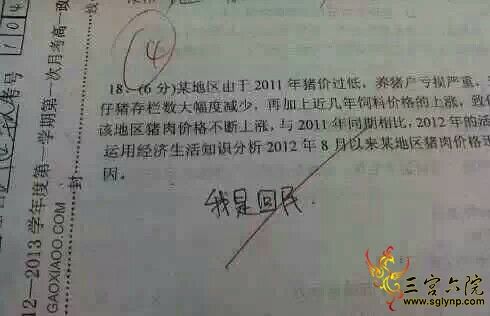 14
18、(6分)某地区由于2011年猪价过低，养猪户亏损严重，
仔猪存栏数大幅度减少，再加上近几年饲料价格的上涨，致
该地区猪肉价格不断上涨，与2011年同期相比，2012年的活
运用经济生活知识分析2012年8月以来某地区猪肉价格
因。
我是回民.
12—2013学年度第一学期第一次月考高一政
GAOXIAOO.COM
封
线
考号
104
三宫六院
www.sglynp.com